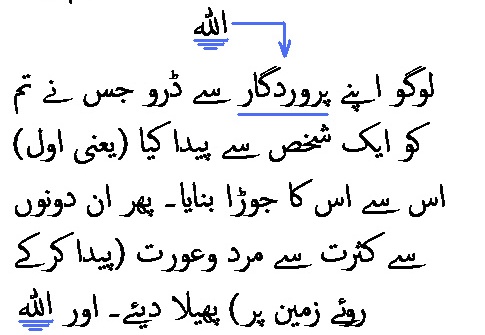 الله
لوگو اپنے پروردگار سے ڈرو جس نے تم
کو ایک شخص سے پیدا کیا (یعنی اول)
اس سے اس کا جوڑا بنایا۔ پھر ان دونوں
سے کثرت سے مرد وعورت (پیدا کرکے
روئے زمین پر) پھیلا دیئے۔ اور الله